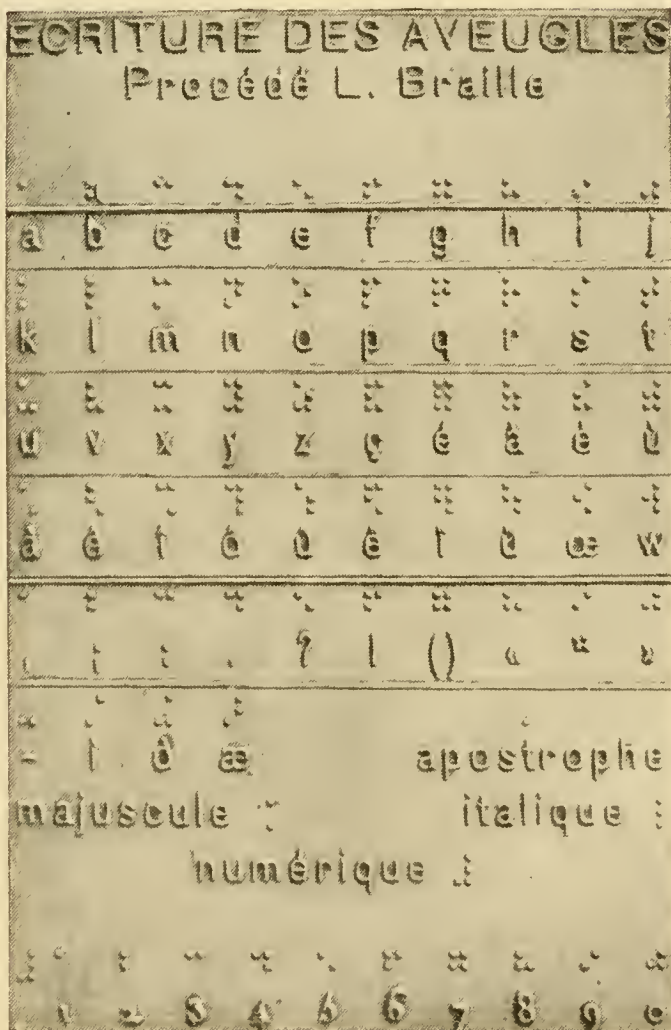 ECRITURE DES AVEUGLES
Procédé L. Braille
a b c d e f g h i j
k l m n o p q r s t
u v x y z ç é à è ù
â ê î ô û ë ï ü œ w
, ; : . ? ! () « * »
- æ
apostrophe
majuscule italique
numérique
1 2 3 4 5 6 7 8 9 0